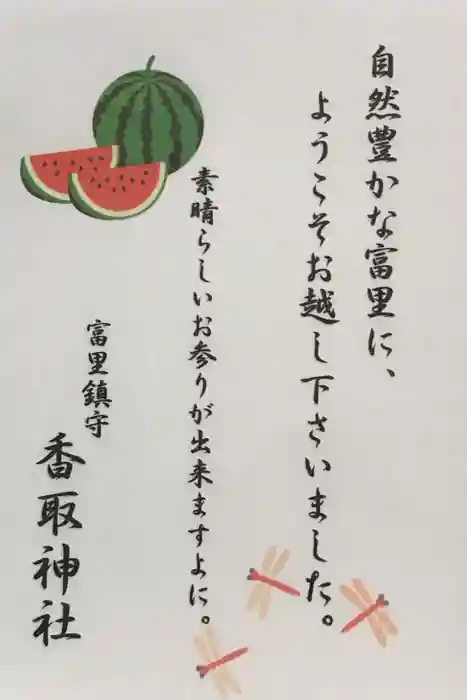 自然豊かな富里に、
ようこそお越し下さいました。
素晴らしいお参りが出来ますよに。
富里鎮守
香取神社